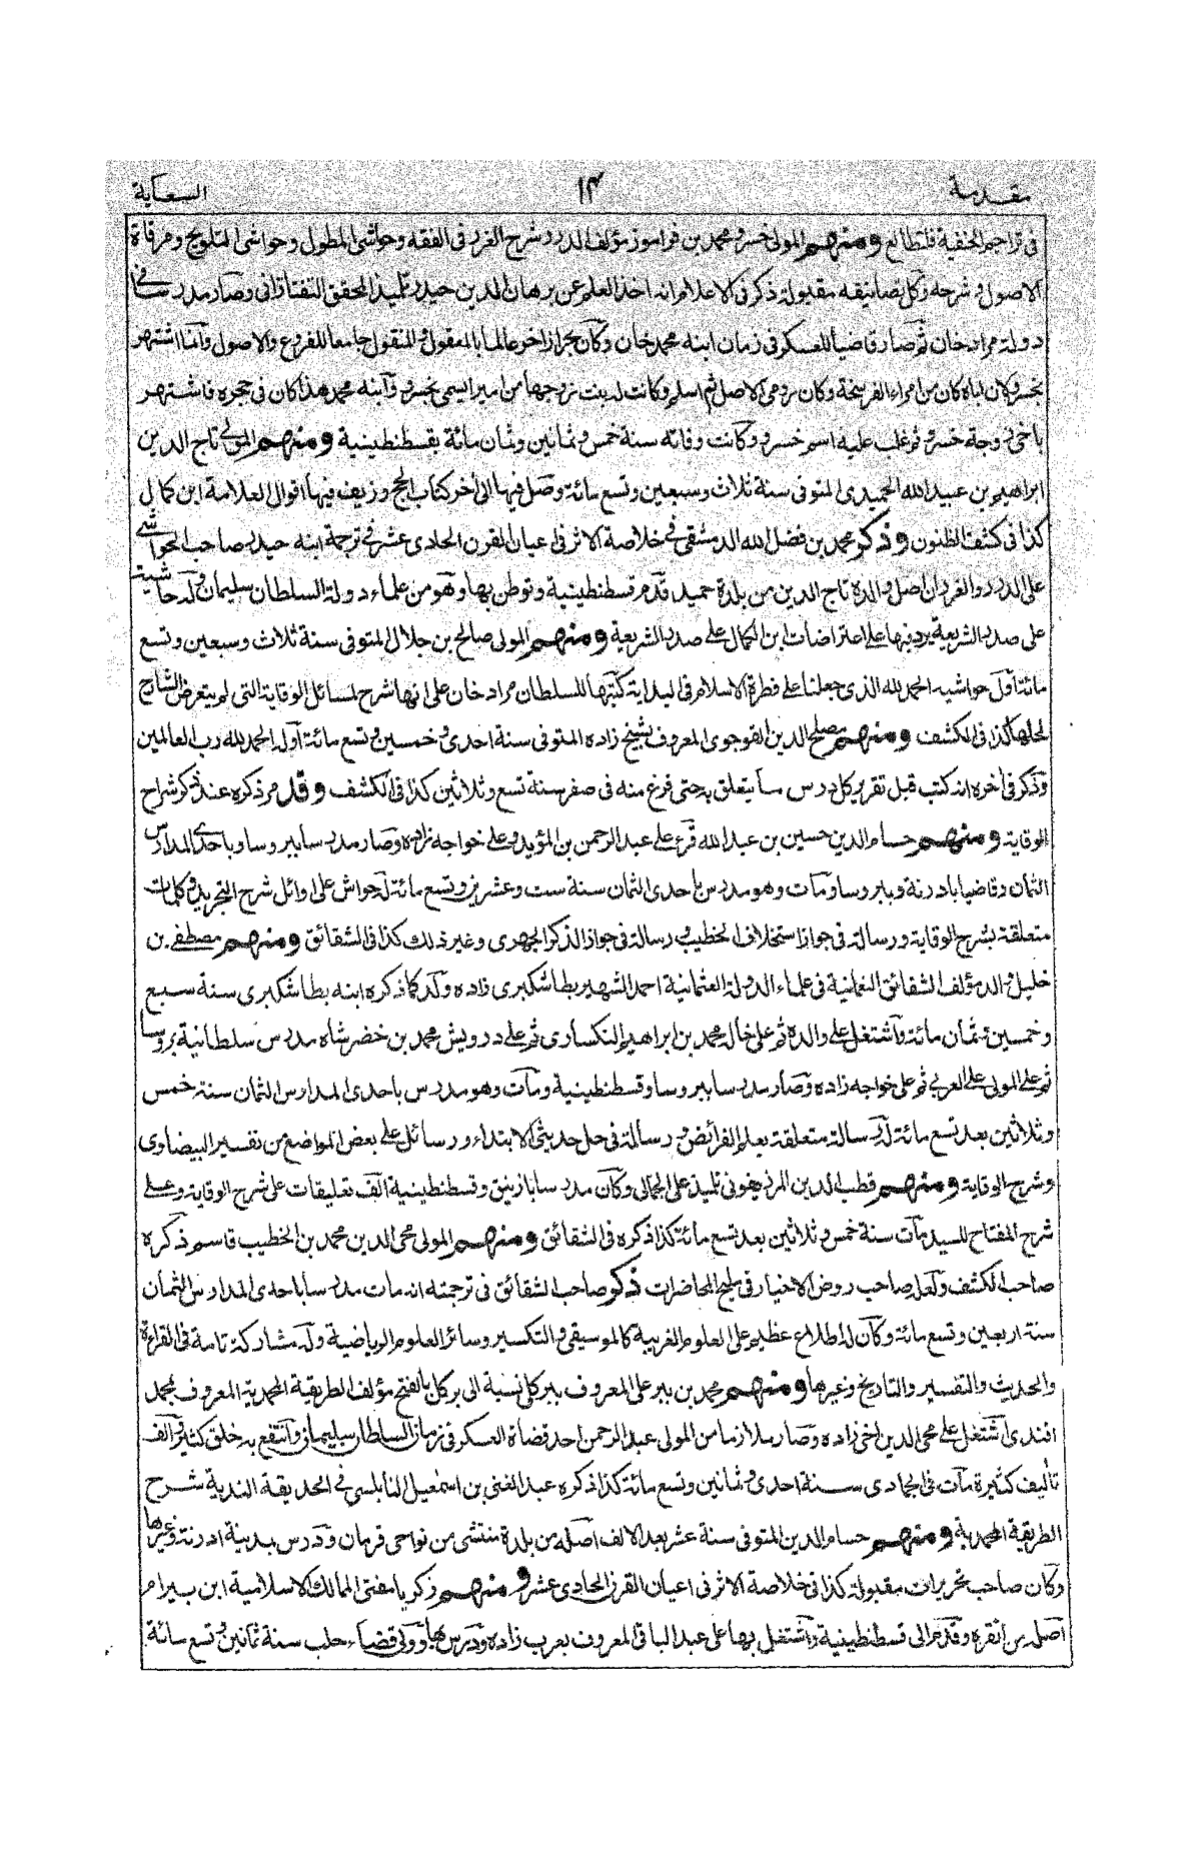 مقدمة ١٣ السعاية
فى تراجم الحنفية فلتطالع ومنهم المولى خسرو محمد بن فراموز مؤلف الدرر شرح الغرر فى الفقه وحواشى المطول وحواشى التلويح ومرقاة
الاصول وشرحه وكل تصانيفه مقبولة ذكر فى الاعلام انه اخذ العلم عن برهان الدين حيدر تلميذ المحقق التفتازانى وصار مدرسا فى
دولة مراد خان ثم صار قاضيا للعسكر فى زمان ابنه محمد خان وكان بحرا زاخر عالما بالمعقول والمنقول جامعا للفروع والاصول وانما اشتهر
بخسرو لان اباه كان من امراء الفرسخة وكان رومى الاصل ثم اسلم وكانت له بنت زوجها من امير ايسمى بخسرو وابنه محمد هذا كان فى حجره فاشتهر
باخى زوجة خسرو ثم غلب عليه اسم خسرو وكانت وفاته سنة خمس وثمانين وثمان مائة بقسطنطينية ومنهم المولى تاج الدين
ابراهيم بن عبيد الله الحميدى المتوفى سنة ثلاث وسبعين وتسع مائة وصل فيها الى أخر كتاب الحج وزيف فيها اقوال العلامة ابن كمال
كذا فى كشف الظنون وذكر محمد بن فضل الله الدمشقى فى خلاصة الاثر فى اعيان القرن الحادى عشر فى ترجمة ابنه حيدر صاحب الحواشى
على الدرر والغرر ان اصل والده تاج الدين من بلدة حميد قدم قسطنطينية وتوطن بها وهو من علماء دولة السلطان سليمان وله حاشية
على صدر الشريعة يرد فيها على اعتراضات ابن الكمال على صدر الشريعة ومنهم المولى صالح بن جلال المتوفى سنة ثلاث وسبعين وتسع
مائة اول حواشيه الحمد لله الذى جعلنا على فطرة الاسلام فى البداية كتبها للسلطان مراد خان على انها شرح لمسائل الوقاية التى لم يتعرض الشارح
لحلها كذا فى الكشف ومنهم مصلح الدين القوجوى المعروف بشيخ زاده المتوفى سنة احدى وخمسين وتسع مائة اوله الحمد لله رب العالمين
وذكر فى اخره انه كتب قبل تقرير كل درس ما يتعلق به حتى فرغ منه فى صفر سنة تسع وثلاثين كذا فى الكشف وقد مر ذكره عند ذكر شراح
الوقاية ومنهم حسام الدين حسين بن عبد الله قرء على عبد الرحمن بن المؤيد وعلى خواجه زاده وصار مدرسا ببروسا وباحدى المدارس
الثمان وقاضيا بادرنة وببروسا ومات وهو مدرس باحدى الثمان سنة ست وعشرين وتسع مائة له حواش على اوائل شرح التجريد وكلمات
متعلقة بشرح الوقاية ورسالة فى جواز استخلاف الخطيب ورسالة فى جواز الذكر الجهرى وغير ذلك كذا فى الشقائق ومنهم مصطفى بن
خليل والد مؤلف الشقائق النعمانية فى علماء الدولة العثمانية احمد الشهير بطاشكبرى زاده ولد كما ذكره ابنه بطاشكبرى سنة سبع
وخمسين وثمان مائة واشتغل على والده ثم على خاله محمد بن ابراهيم النكسارى ثم على درويش محمد بن خضر شاه مدرس سلطانية بروسا
ثم على المولى على العربى ثم على خواجه زاده وصار مدرسا ببروسا وقسطنطينية ومات وهو مدرس باحدى المدارس الثمان سنة خمس
وثلاثين بعد تسع مائة له رسالة متعلقة بعلم الفرائض ورسالة فى حل حديثى الابتداء ورسائل على بعض المواضع من تفسير البيضاوى
وشرح الوقاية ومنهم قطب الدين المرزيفونى تلميذ على الجمالى وكان مدرسا بازنيق وقسطنطينية الف تعليقات على شرح الوقاية وعلى
شرح المفتاح للسيد مات سنة خمس وثلاثين بعد تسع مائة كذا ذكره فى الشقائق ومنهم المولى محى الدين محمد بن الخطيب قاسم ذكره
صاحب الكشف ولعله صاحب روض الاخيار فى المحاضرات ذكر صاحب الشقائق فى ترجمته انه مات مدرسا باحدى المدارس الثمان
سنة اربعين وتسع مائة وكان له اطلاع عظيم على العلوم الغريبة كالموسيقى والتكسير وسائر العلوم الرياضية وله مشاركة تامة فى القراءة
والحديث والتفسير والتاريخ وغيرها ومنهم محمد بن بير على المعروف ببركلى نسبة الى بركل بالفتح مؤلف الطريقة المحمدية المعروف بمحمد
افندى اشتغل على محى الدين اخى زاده وصار ملازما من المولى عبد الرحمن احد قضاة العسكر فى زمان السلطان سليمان وانتفع به خلق كثير والف
تأليف كثيرة مات فى الجمادى سنة احدى وثمانين وتسع مائة كذا ذكره عبد الغنى بن اسمعيل النابلسى فى الحديقة الندية شرح
الطريقة المحمدية ومنهم حسام الدين المتوفى سنة عشر بعد الالف اصله من بلدة منتشى من نواحى قرمان ودرس بمدينة ادرنة وغيرها
وكان صاحب تحريرات مقبولة كذا فى خلاصة الاثر فى اعيان القرن الحادى عشر ومنهم زكريا مفتى الممالك الاسلامية ابن بيرام
اصله من انقره وقدم الى قسطنطينية واشتغل بها على عبد الباقى المعروف بعرب زاده ودرس بها وولى قضاء حلب سنة ثمانين وتسع مائة